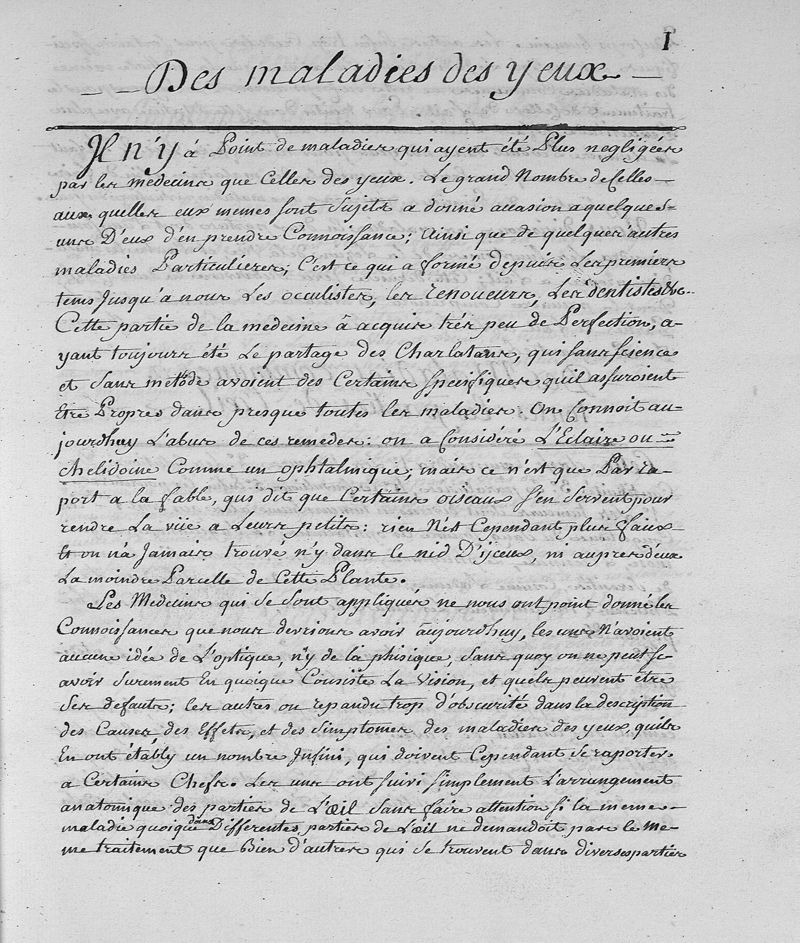 1
Des maladies des yeux
Il n'y à Point de maladies qui ayent été Plus negligées
par les medecins que Celles des yeux. Le grand Nombre de Celles
aux quelles eux memes sont Sujets a donné occasion a quelques
uns D'eux d'en prendre Connoissance; ainsi que de quelques autres
maladies Particulieres; C'est ce qui a formé depuis Les premiers
tems Jusqu'a nous Les occulistes, les renoueurs, Les dentistes &c.
Cette partie de la medecine à acquis trés peu de Perfection, a-
yant toujours été Le partage des Charlatans, qui sans science
et Sans metode avoient des Certains specifiques qu'il assuroient
Etre Propres dans presque toutes les maladies. On Connoit au-
jourdhuy L'abus de ces remedes: on a Considéré L'Eclaire ou
chelidoine Comme un ophtalmique; mais ce n'est que Par ra-
port a la fable, qui dit que Certains oiseaux s'en servent pour
rendre La vüe a Leurs petits: rien N'est Cependant plus faux
Et on n'a Jamais trouvé n'y dans le nid D'iceux, ni aupres d'eux
La moindre Parcelle de Cette Plante.
Les Medecins qui se sont appliqués ne nous ont point donné les
Connoissances que nous devrions avoir aujourdhuy, les uns N'avoient
aucune idée de L'optique, n'y de la phisique, Sans quoy on ne peut S-
avoir Surement En quoique Consiste La vision, et quels peuvent être
Ses defauts; les autres ou repandu trop d'obscurité dans la description
des Causes des Effets, et des Simptomes des maladies des yeux, quils
En ont étably un nombre Infini, qui doivent Cependant se raporter
a Certains Chefs. Les uns ont suivi simplement L'arrangement
anatomique des parties de L'œil sans faire attention si la meme
maladie quoique dans Differentes parties de L'œil ne demandoit pas le Me-
me traitement que Bien d'autres qui se trouvent dans diverses parties